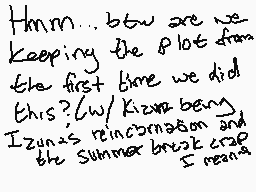 Hmm... btw are we
keeping the plot from
the first time we did
this? (w/ Kizuna being
Izuna's reincarnation and
the summer break crap
I mean